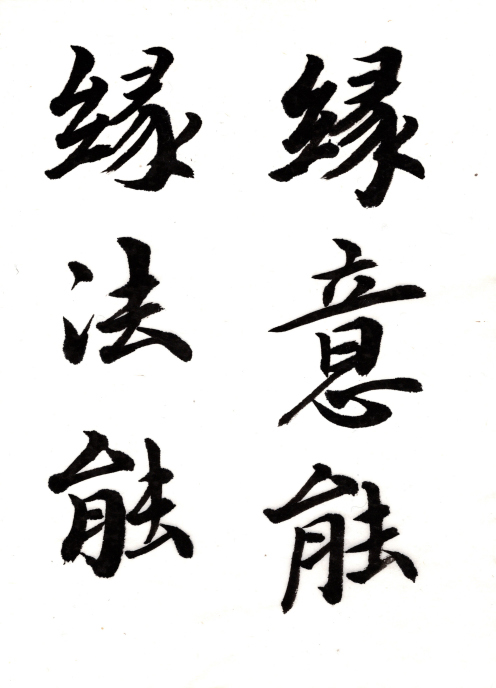 縁意能
縁法能